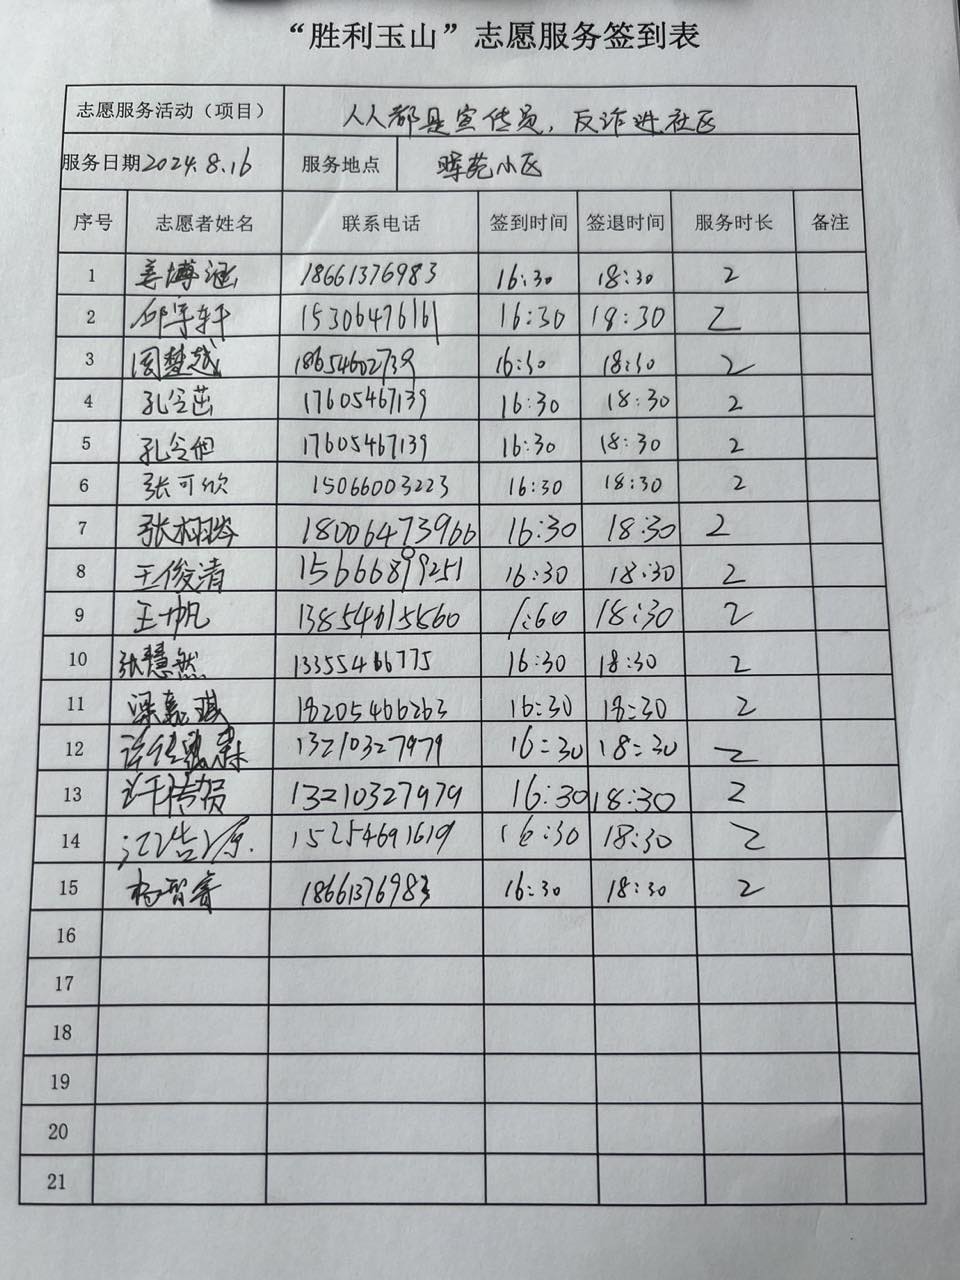 “胜利玉山”志愿服务签到表
志愿服务活动（项目） 人人都是宣传员，反诈进社区
服务日期 2024.8.16 服务地点 晖苑小区
序号 志愿者姓名 联系电话 签到时间 签退时间 服务时长 备注
1 姜博涵 18661376983 16:30 18:30 2
2 邱宇轩 15306476161 16:30 18:30 2
3 周梦越 18654602739 16:30 18:30 2
4 孔令茁 17605467139 16:30 18:30 2
5 孔令但 17605467139 16:30 18:30 2
6 张可欣 15066003223 16:30 18:30 2
7 张栩 18006473966 16:30 18:30 2
8 王俊清 15666899251 16:30 18:30 2
9 王一帆 13854615660 18:30 2
10 张慧然 13355466775 16:30 18:30 2
11 梁嘉琪 18205466263 16:30 18:30 2
12 许 森 13210327979 16:30 18:30 2
13 许 13210327979 16:30 18:30 2
14 江浩源 15254691619 16:30 18:30 2
15 杨智睿 18661376983 16:30 18:30 2
16
17
18
19
20
21